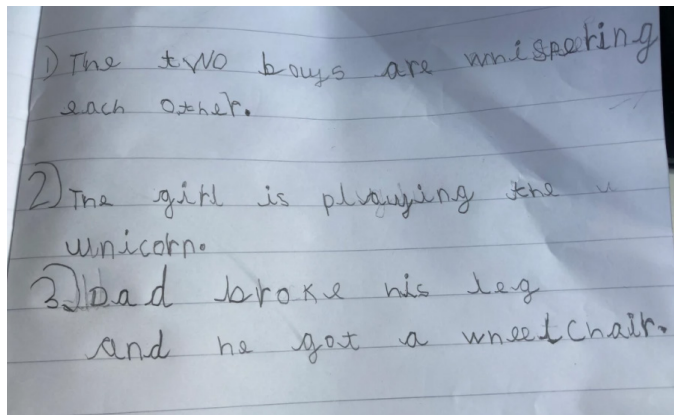 1) The two bouys are whispering
each other.
2) The girl is plvauying the u
unicorn.
3.) Dad broke his leg
and he got a wheelchair.